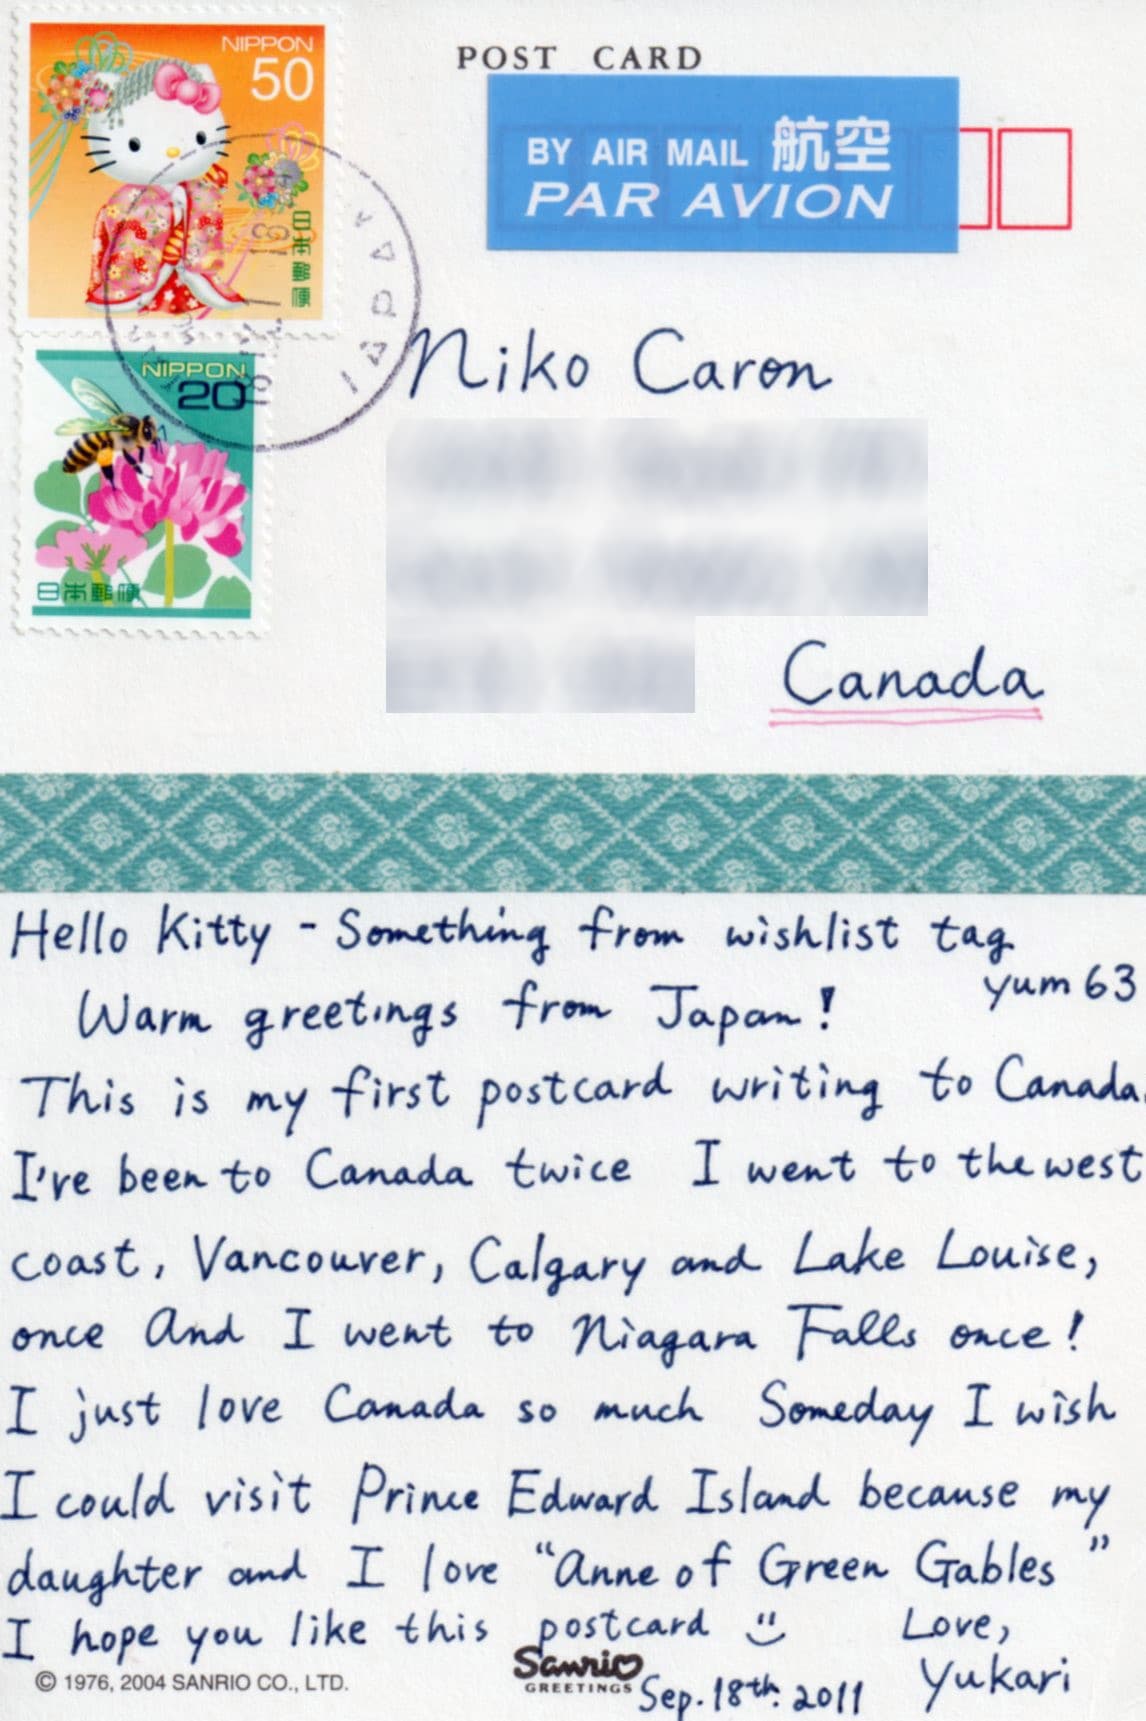 NIPPON
50
日本郵便
NIPPON
20
日本郵便
POST CARD
BY AIR MAIL 航空
PAR AVION
Niko Caron
Canada
Hello Kitty - Something from wishlist tag
yum63
Warm greetings from Japan!
This is my first postcard writing to Canada.
I've been to Canada twice I went to the west
coast, Vancouver, Calgary and Lake Louise,
once And I went to Niagara Falls once!
I just love Canada so much Someday I wish
I could visit Prince Edward Island because my
daughter and I love "Anne of Green Gables"
I hope you like this postcard
Love,
Yukari
© 1976, 2004 SANRIO CO., LTD.
Sanrio
GREETINGS
Sep. 18th. 2011